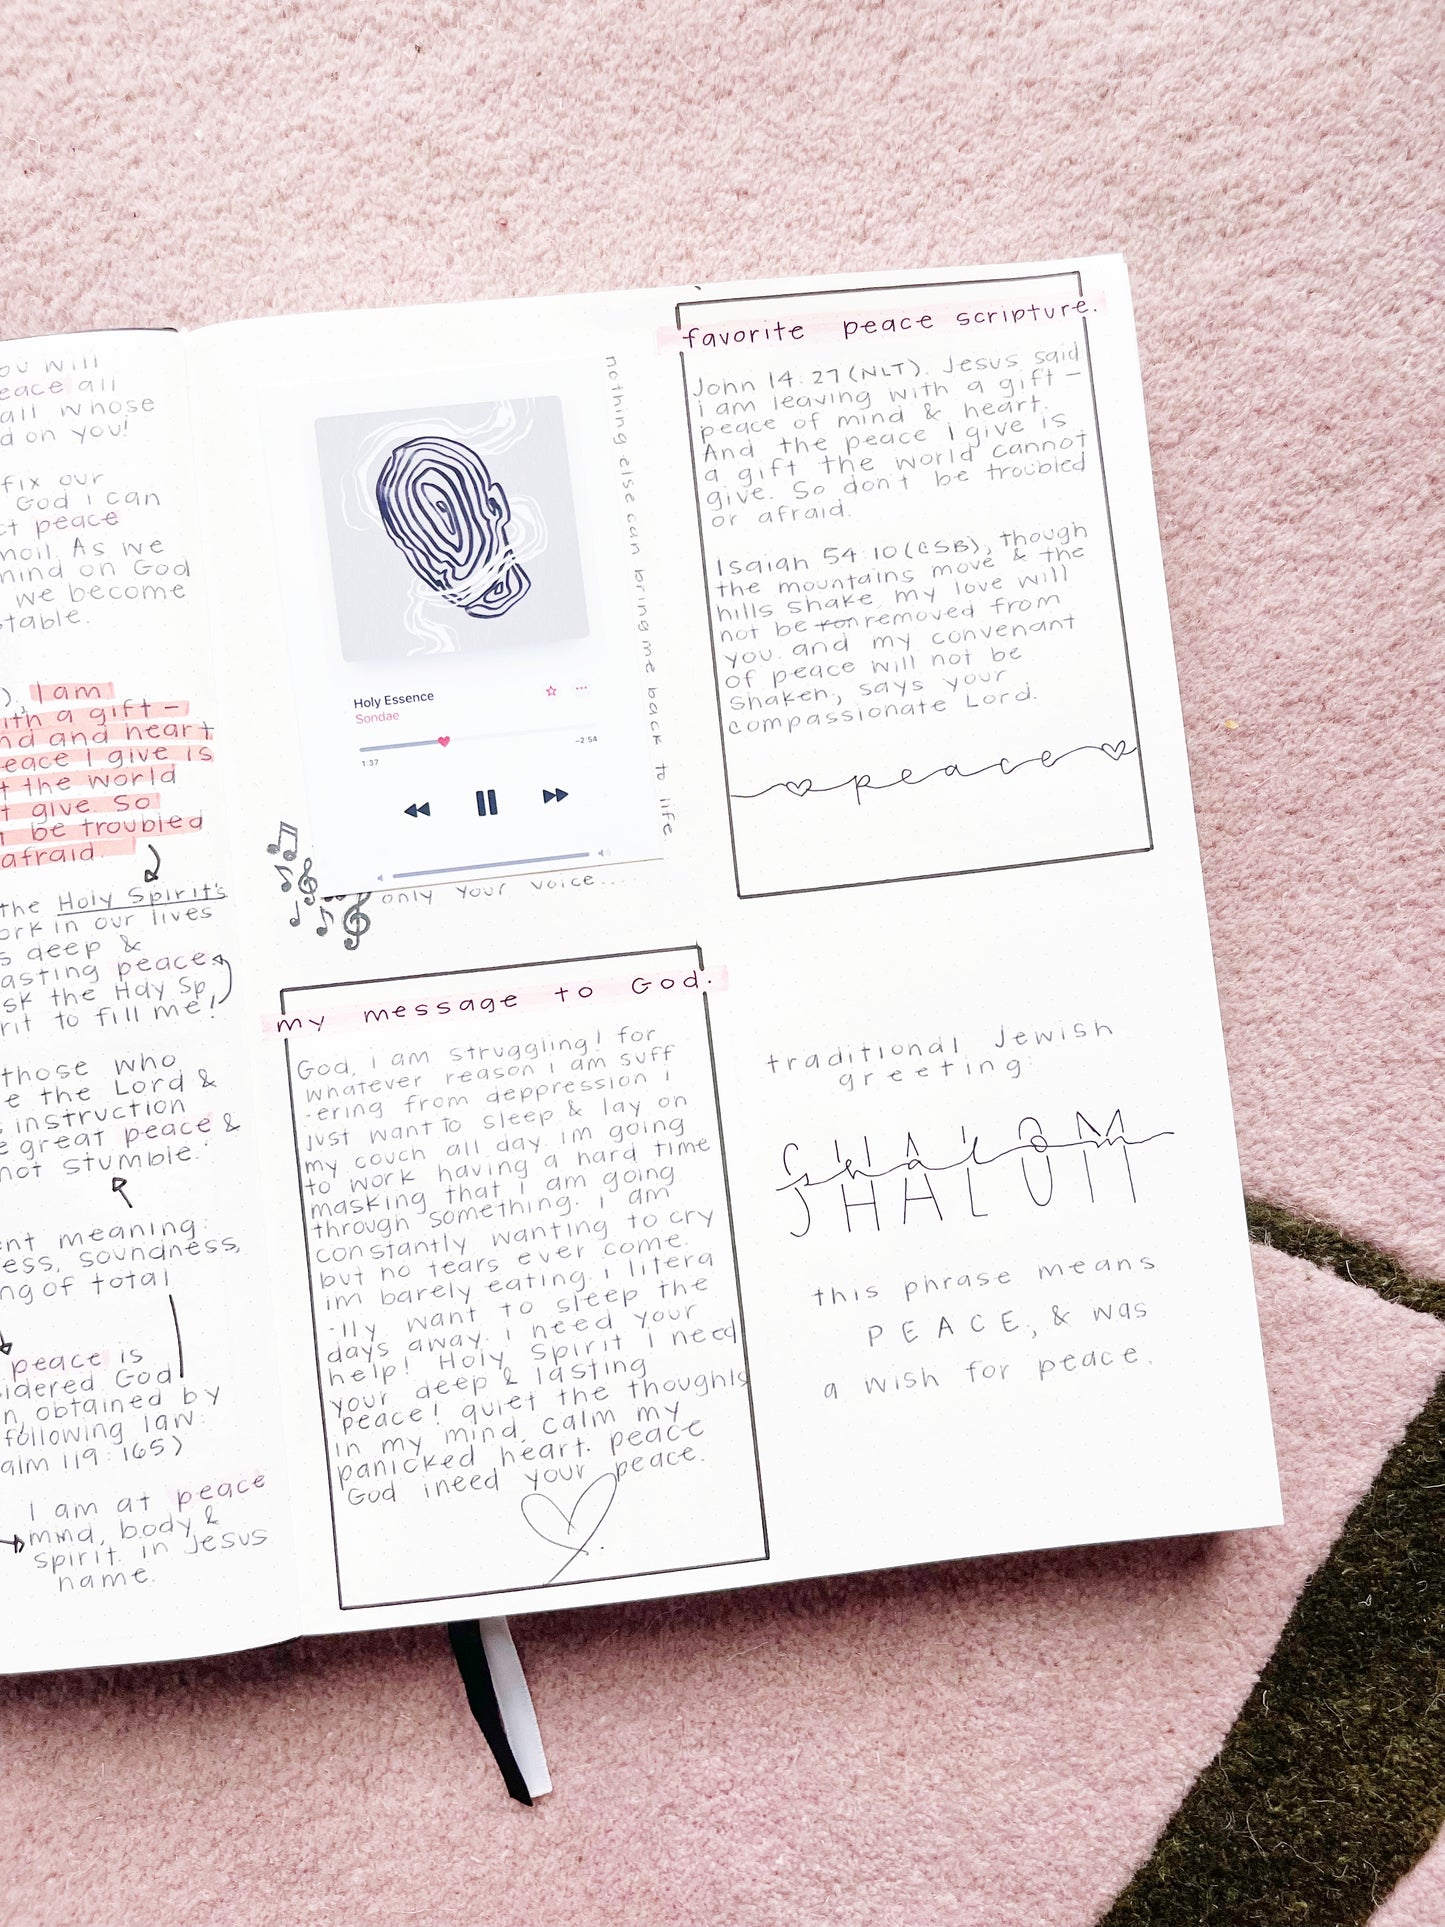 ou will
eace all
all whose
d on you!
fix our
God i can
ct peace
moil. As we
mind on God
we become
stable.
), I am
ith a gift -
nd and heart
eace I give is
t the world
t give. So
t be troubled
afraid.
the Holy Spirit's
ork in our lives
s deep &
asting peace
sk the Holy Sp
rit to fill me!
those who
e the Lord &
s instruction
e great peace &
not stumble.
ent meaning:
ess, soundness,
ng of total
peace is
sidered God
n, obtained by
following law.
alm 119:165)
I am at peace
mind, body &
spirit. in Jesus
name.
nothing else can bring me back to life
Holy Essence
Sondae
1:37
-2:54
only your voice.....
my message to God.
God, i am struggling! for
whatever reason i am suff
-ering from deppression i
just want to sleep & lay on
my couch all day. im going
to work having a hard time
masking that i am going
through something. i am
constantly wanting to cry
but no tears ever come.
im barely eating. i litera
-lly want to sleep the
days away. i need your
help! Holy Spirit I need
your deep & lasting
peace! quiet the thoughts
in my mind. calm my
panicked heart. peace
God ineed your peace.
favorite peace scripture.
John 14:27(NLT). Jesus said
i am leaving with a gift -
peace of mind & heart.
And the peace I give is
a gift the world cannot
give. So don't be troubled
or afraid.
Isaiah 54:10(CSB), though
the mountains move & the
hills shake, my love will
not be ron removed from
you. and my convenant
of peace will not be
shaken, says your
compassionate Lord.
peace
traditional Jewish
greeting:
shalom
SHALOM
this phrase means
PEACE, & was
a wish for peace.